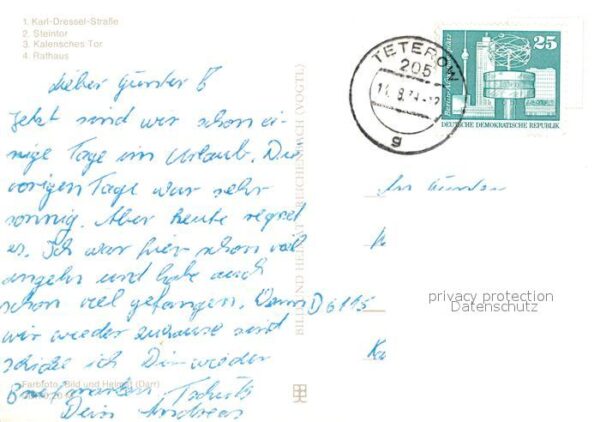 1. Karl-Dressel-Straße
2. Steintor
3. Kalensches Tor
4. Rathaus
Lieber Günter B
Jetzt sind wir schon ei-
nige Tage im Urlaub. Die
vorigen Tage war sehr
sonnig. Aber heute regnet
es. Ich war hier schon viel
angeln und habe auch
schon viel gefangen. Wenn
wir wieder zuhause sind
schicke ich Dir wieder
Briefmarken. Tschüß
Dein Andreas
Farbfoto: Bild und Heimat (Darr)
BILD UND HEIMAT REICHENBACH (VOGTL)
TETEROW
205
g
25
DEUTSCHE DEMOKRATISCHE REPUBLIK
D 6115
privacy protection
Datenschutz